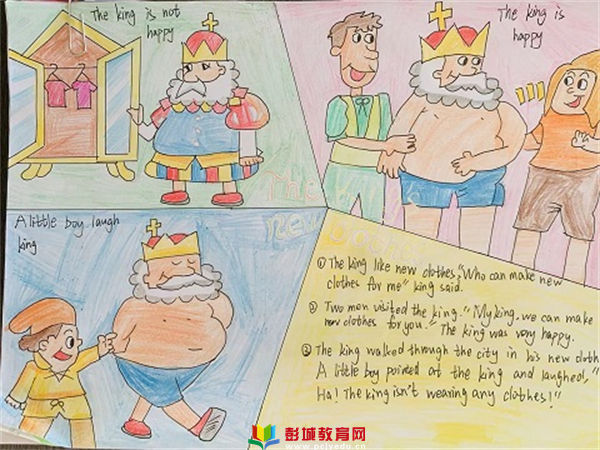 The king is not
happy
The king is
happy
A little boy laugh
king
The
new
① The king like new clothes. "Who can make new
clothes for me" king said.
② Two men visited the king. "My king, we can make
new clothes for you." The king was very happy.
③ The king walked through the city in his new cloth
A little boy pointed at the king and laughed, "
Ha! The king isn't wearing any clothes!"
彭城教育网
www.pcjyedu.cn